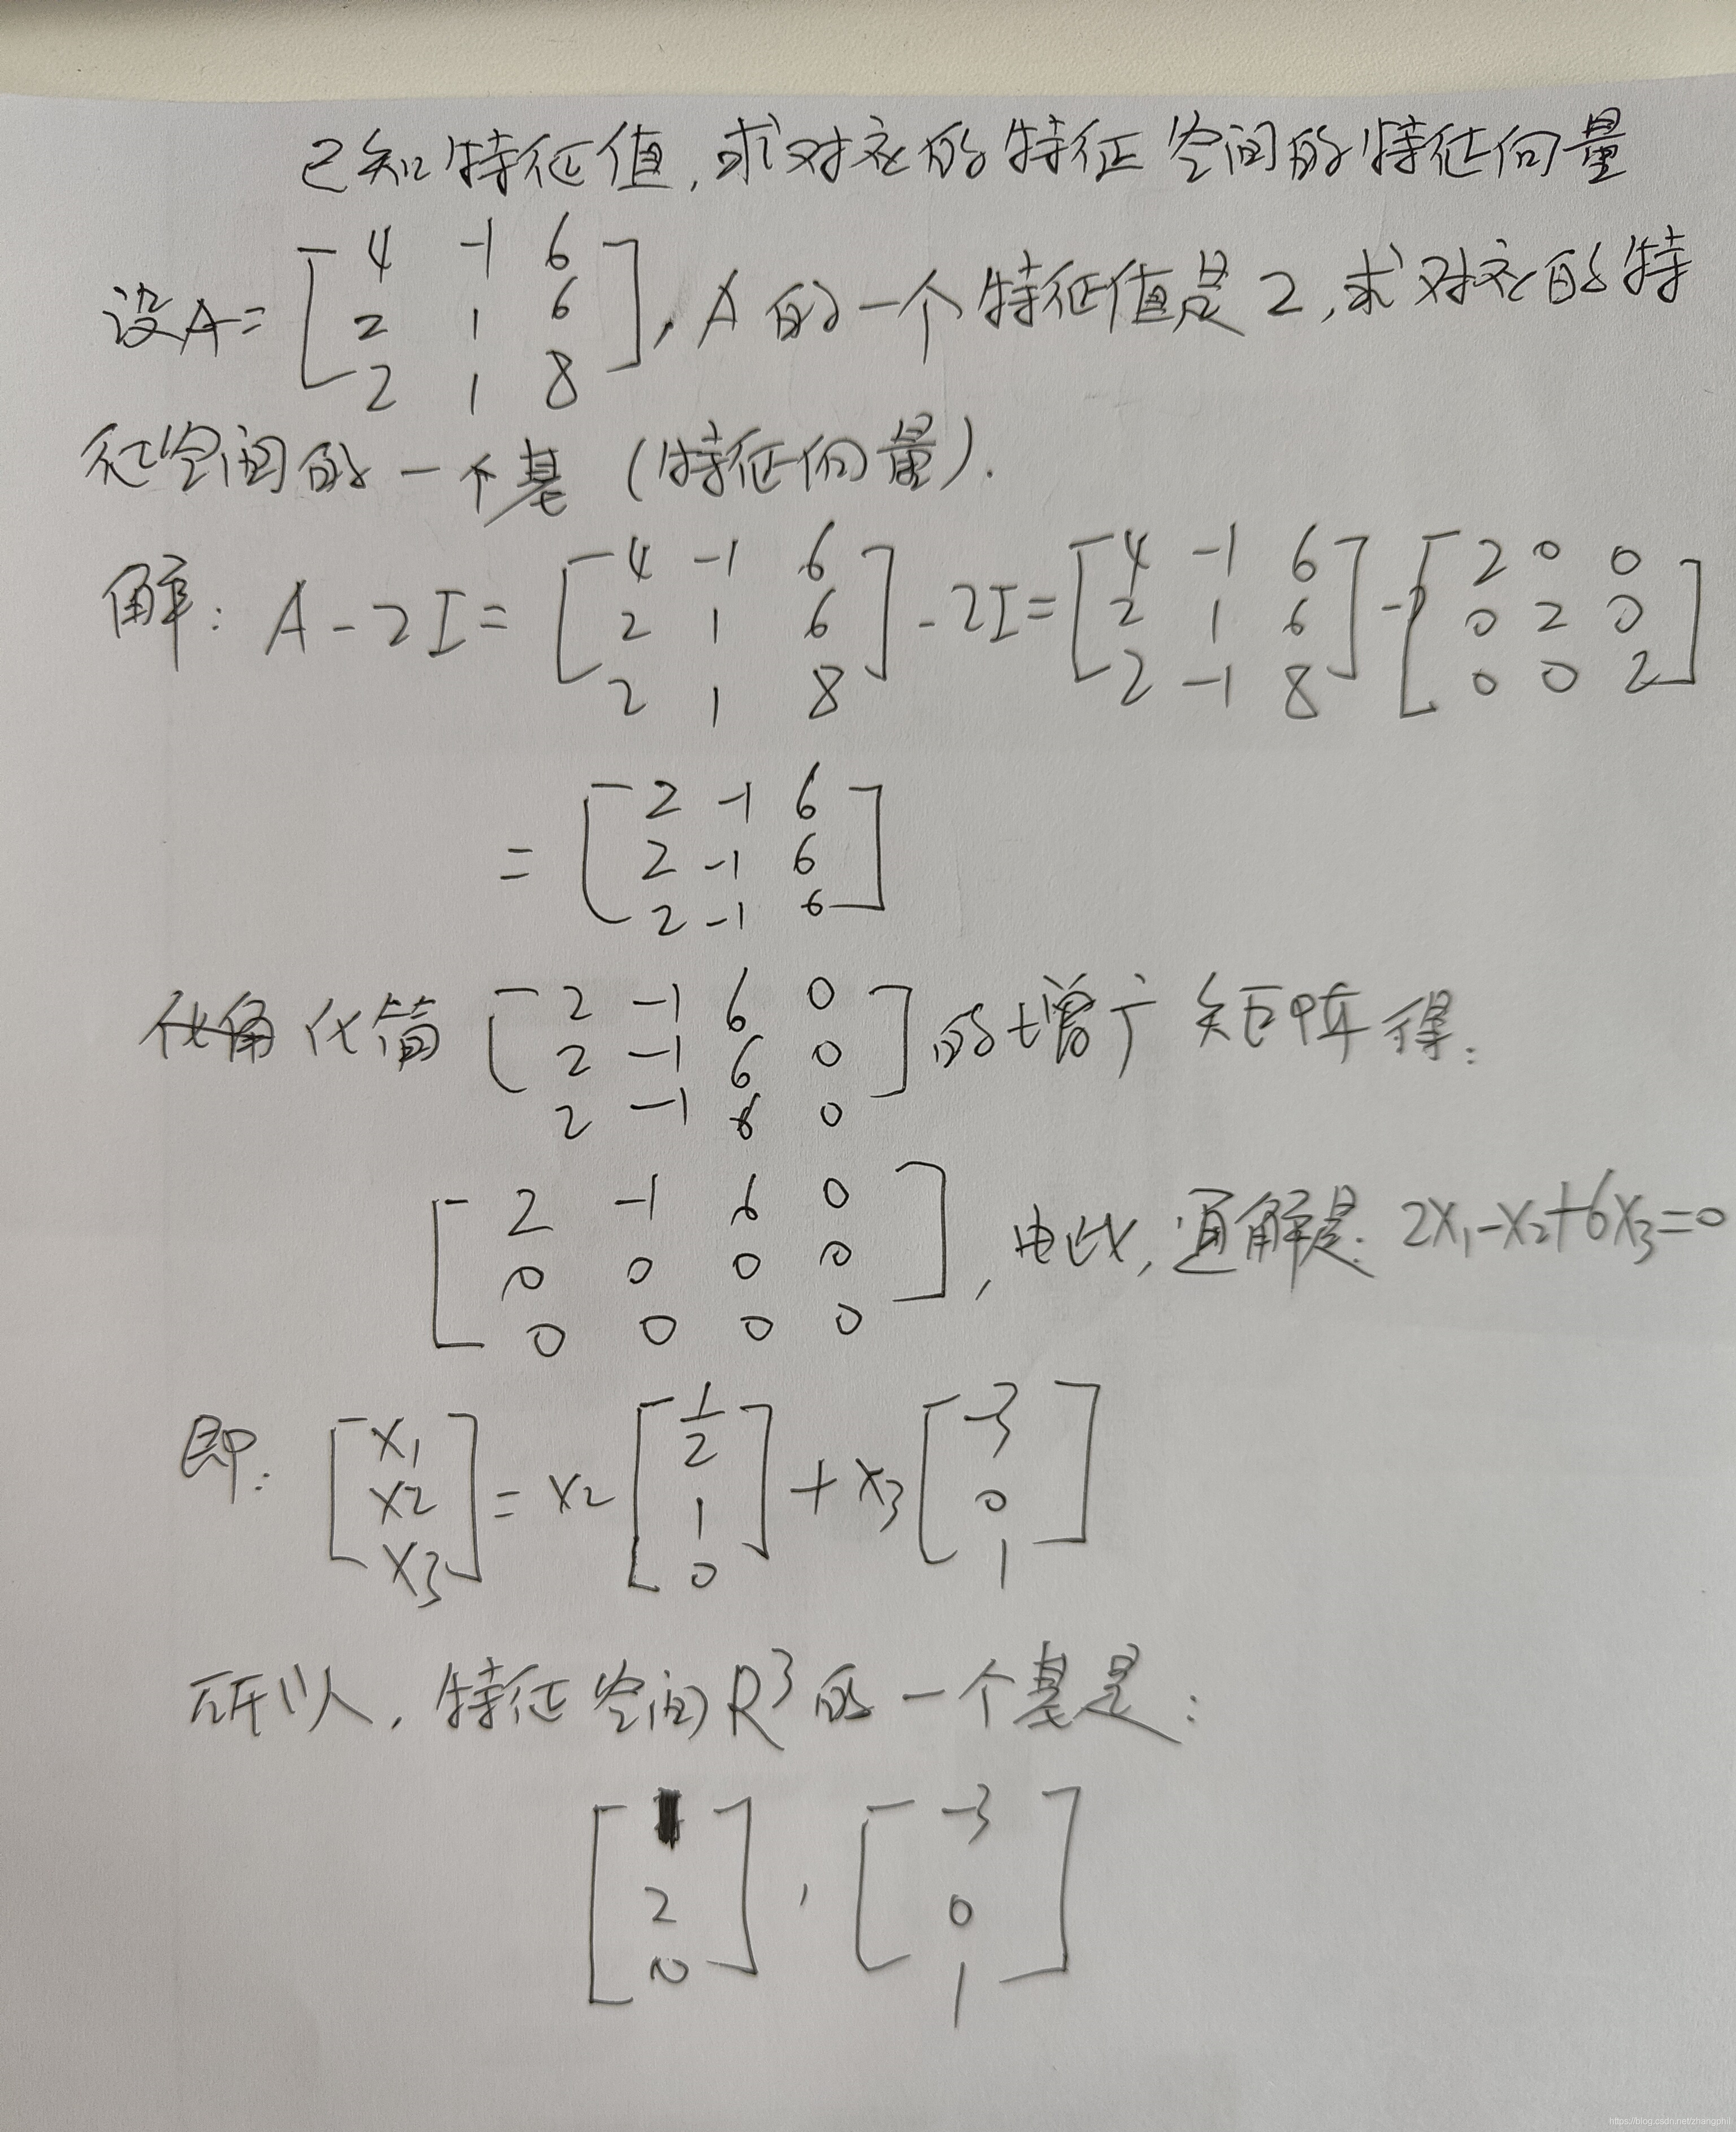 已知特征值,求对应的特征空间的特征向量
设A= [4 -1 6; 2 1 6; 2 1 8], A的一个特征值是2,求对应的特
征空间的一个基(特征向量).
解: A-2I= [4 -1 6; 2 1 6; 2 1 8] -2I= [4 -1 6; 2 1 6; 2 -1 8] - [2 0 0; 0 2 0; 0 0 2]
= [2 -1 6; 2 -1 6; 2 -1 6]
化简 [2 -1 6 0; 2 -1 6 0; 2 -1 6 0] 的增广矩阵得:
[2 -1 6 0; 0 0 0 0; 0 0 0 0], 由此,通解是: 2x₁-x₂+6x₃=0
即: [x₁; x₂; x₃] = x₂ [1/2; 1; 0] + x₃ [-3; 0; 1]
所以,特征空间R³的一个基是:
[1; 2; 0], [-3; 0; 1]
https://blog.csdn.net/zhangphil